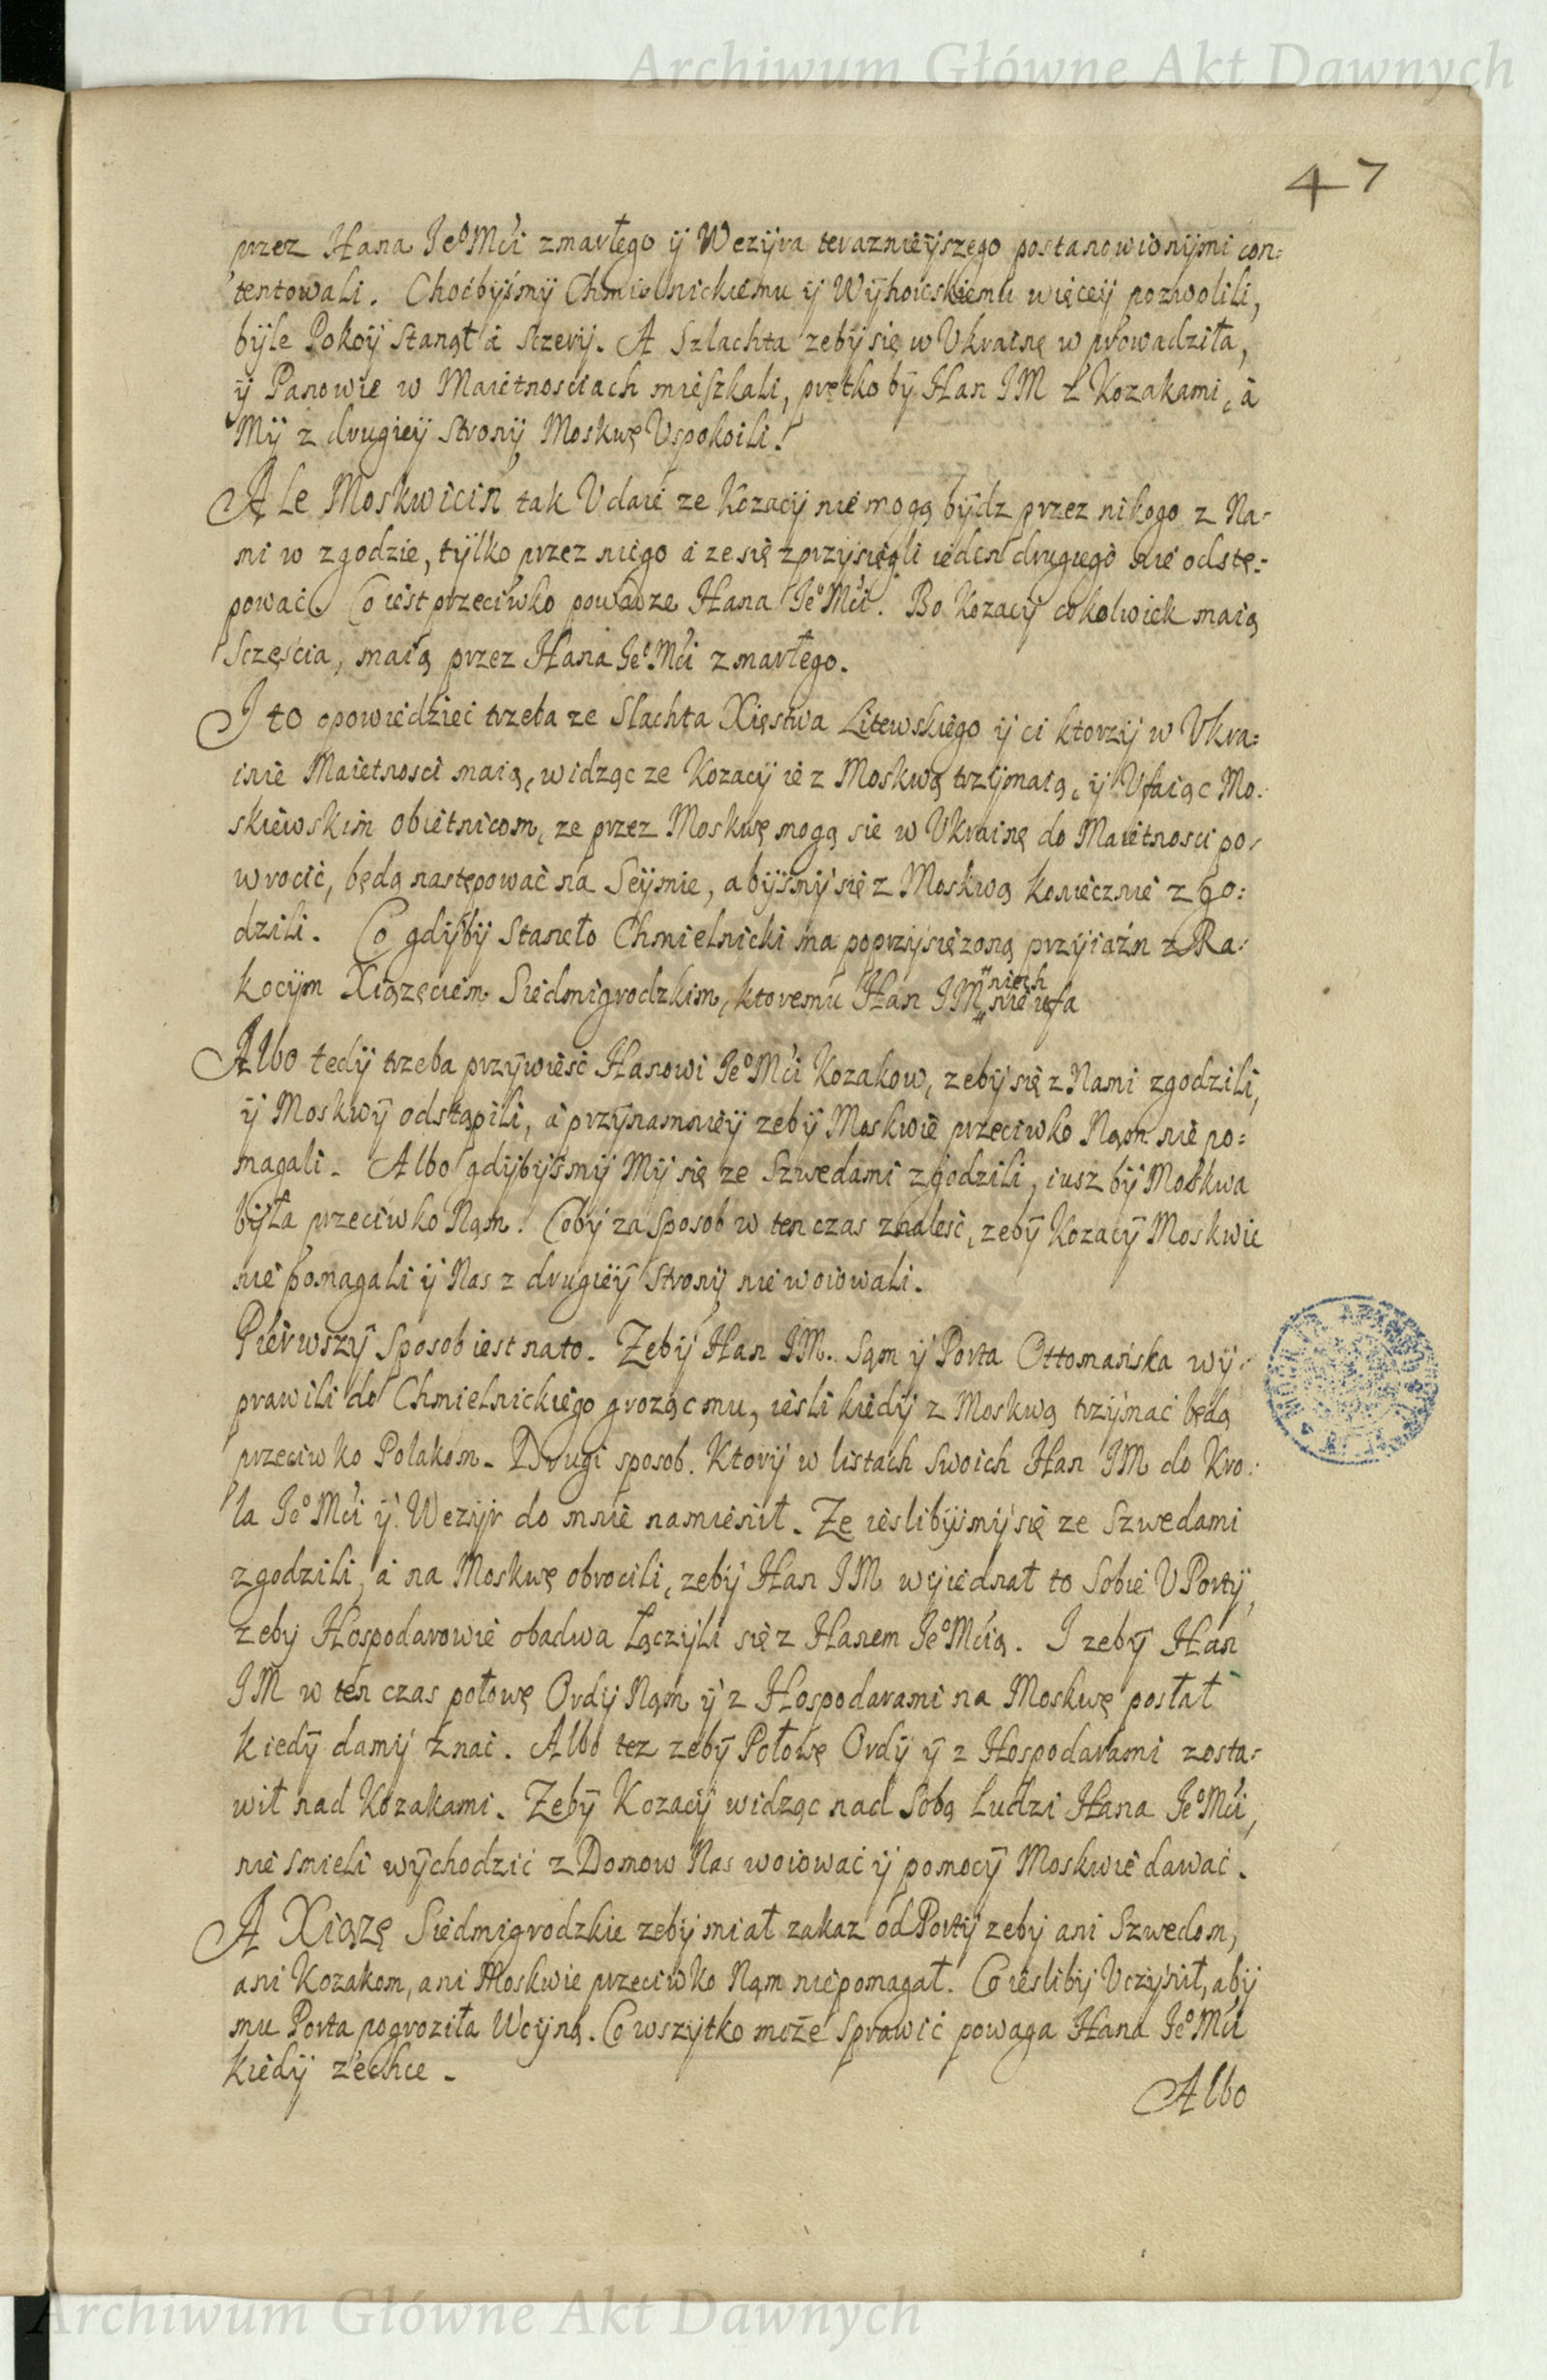 Archiwum Główne Akt Dawnych
47
przez Hana Jeo Mći zmarłego ÿ Wezÿra teraznieÿszego postanowionÿmi con=
tentowali. Choćbÿsmÿ Chmielnickiemu ÿ Wÿhowskiemu więceÿ pozwolili,
bÿle Pokoÿ stanął á szczerÿ. A Szlachta zebÿ się w Ukrainę wprowadziła,
ÿ Panowie w Maiętnosciach mieszkali, prętko bÿ Han JM z Kozakami, á
Mÿ z drugieÿ stronÿ Moskwę Uspokoili.
Ale Moskwicin tak Udaie ze Kozacÿ nie mogą bÿdz przez nikogo z Na-
mi w zgodzie, tÿlko przez niego á ze się zprzÿsięgli ieden drugiego nie odstę=
pować. Co iest przeciwko powadze Hana Jeo Mći. Bo Kozacÿ cokolwiek maią
Sczęscia, maią przez Hana Jeo Mći zmarłego.
I to opowiedzieć trzeba ze Slachta Xięstwa Litewskiego ÿ ci ktorzÿ w Ukra=
inie Maiętnosci maią, widząc ze Kozacÿ ie z Moskwą trzÿmaią, ÿ Ufaiąc Mo=
skiewskim obietnicom, ze przez Moskwę mogą sie w Ukrainę do Maiętnosci po-
wrocić, będą następować na Seÿmie, abÿsmÿ się z Moskwą koniecznie zgo=
dzili. Co gdÿbÿ stanęło Chmielnicki ma poprzÿsięzoną przÿiaźn z Ra=
kocÿm Xiązęciem Siedmigrodzkim, ktoremu Han JM "niech" nie ufa
Albo tedÿ trzeba przÿwiesć Hanowi Jeo Mći Kozakow, zebÿ się z Nami zgodzili,
ÿ Moskwÿ odstąpili, á przÿnamnieÿ zebÿ Moskwie przeciwko Nąm nie po=
magali. Albo gdÿbÿsmÿ Mÿ się ze Szwedami zgodzili, iusz bÿ Moskwa
bÿła przeciwko Nąm. Cobÿ za sposob w ten czas znalesć, zebÿ Kozacÿ Moskwie
nie pomagali ÿ Nas z drugieÿ stronÿ nie woiowali.
Pierwszÿ sposob iest na to. Zebÿ Han JM. sąm ÿ Porta Ottomańska wÿ=
prawili do Chmielnickiego grozącmu, iesli kiedÿ z Moskwą trzÿmać będą
przeciwko Polakom. Drugi sposob. Ktorÿ w listach swoich Han JM do Kro=
la Jeo Mći ÿ Wezÿr do mnie namienił. Ze ieslibÿsmÿ się ze Szwedami
zgodzili, á na Moskwę obrocili, zebÿ Han JM wÿiednał to sobie U Portÿ,
zebÿ Hospodarowie obadwa łączÿli się z Hanem Jeo Mćią. I zebÿ Han
JM w ten czas połowę Ordÿ Nąm ÿ z Hospodarami na Moskwę posłał
kiedÿ damÿ znać. Albo tez zebÿ Połowę Ordÿ ÿ z Hospodarami zosta-
wił nad Kozakami. Zebÿ Kozacÿ widząc nad sobą Ludzi Hana Jeo Mći,
nie smieli wÿchodzić z Domow Nas woiować ÿ pomocÿ Moskwie dawać.
A Xiązę Siedmigrodzkie zebÿ miał zakaz od Portÿ zebÿ ani Szwedom,
ani Kozakom, ani Moskwie przeciwko Nąm niepomagał. Co ieslibÿ Uczÿnił, abÿ
mu Porta pogroziła Woÿną. Co wszÿtko może sprawić powaga Hana Jeo Mći
kiedÿ zechce.
Albo
Archiwum Główne Akt Dawnych